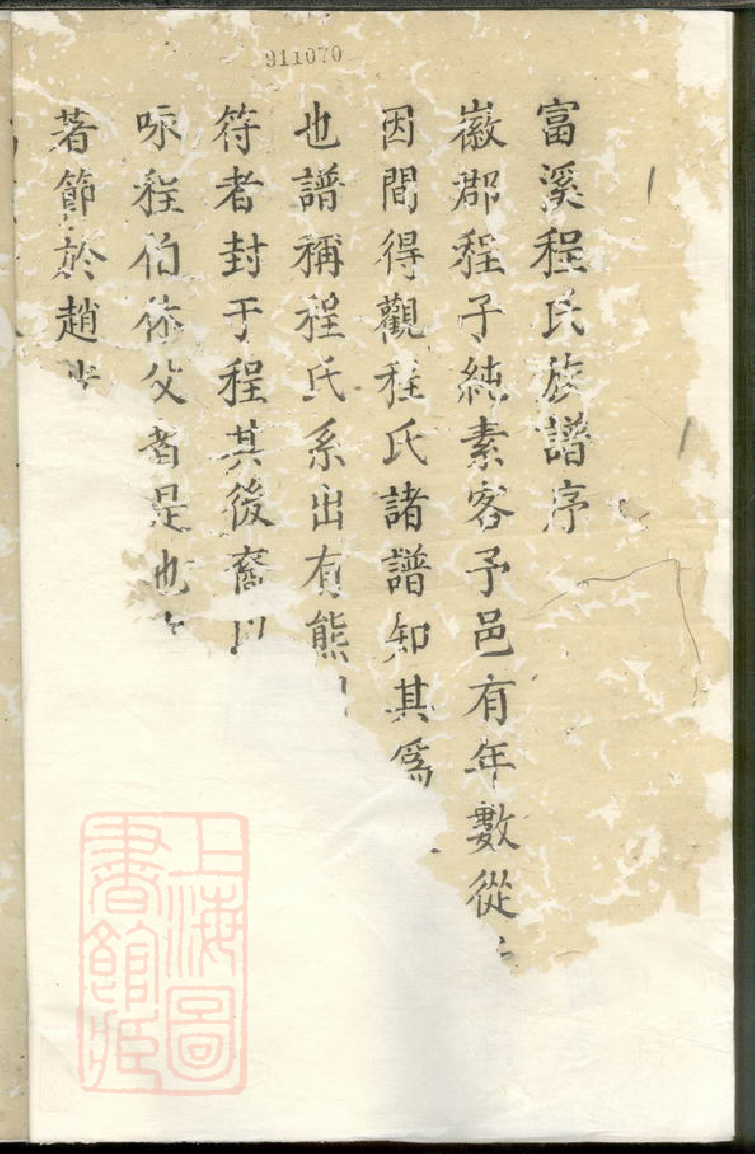 911070
富溪程氏族譜序
徽郡程子純素客予邑有年數從
因間得觀程氏諸譜知其爲
也譜稱程氏系出有熊
符者封于程其後裔
咏程伯休父者是也
著節於趙
上海圖
書館藏